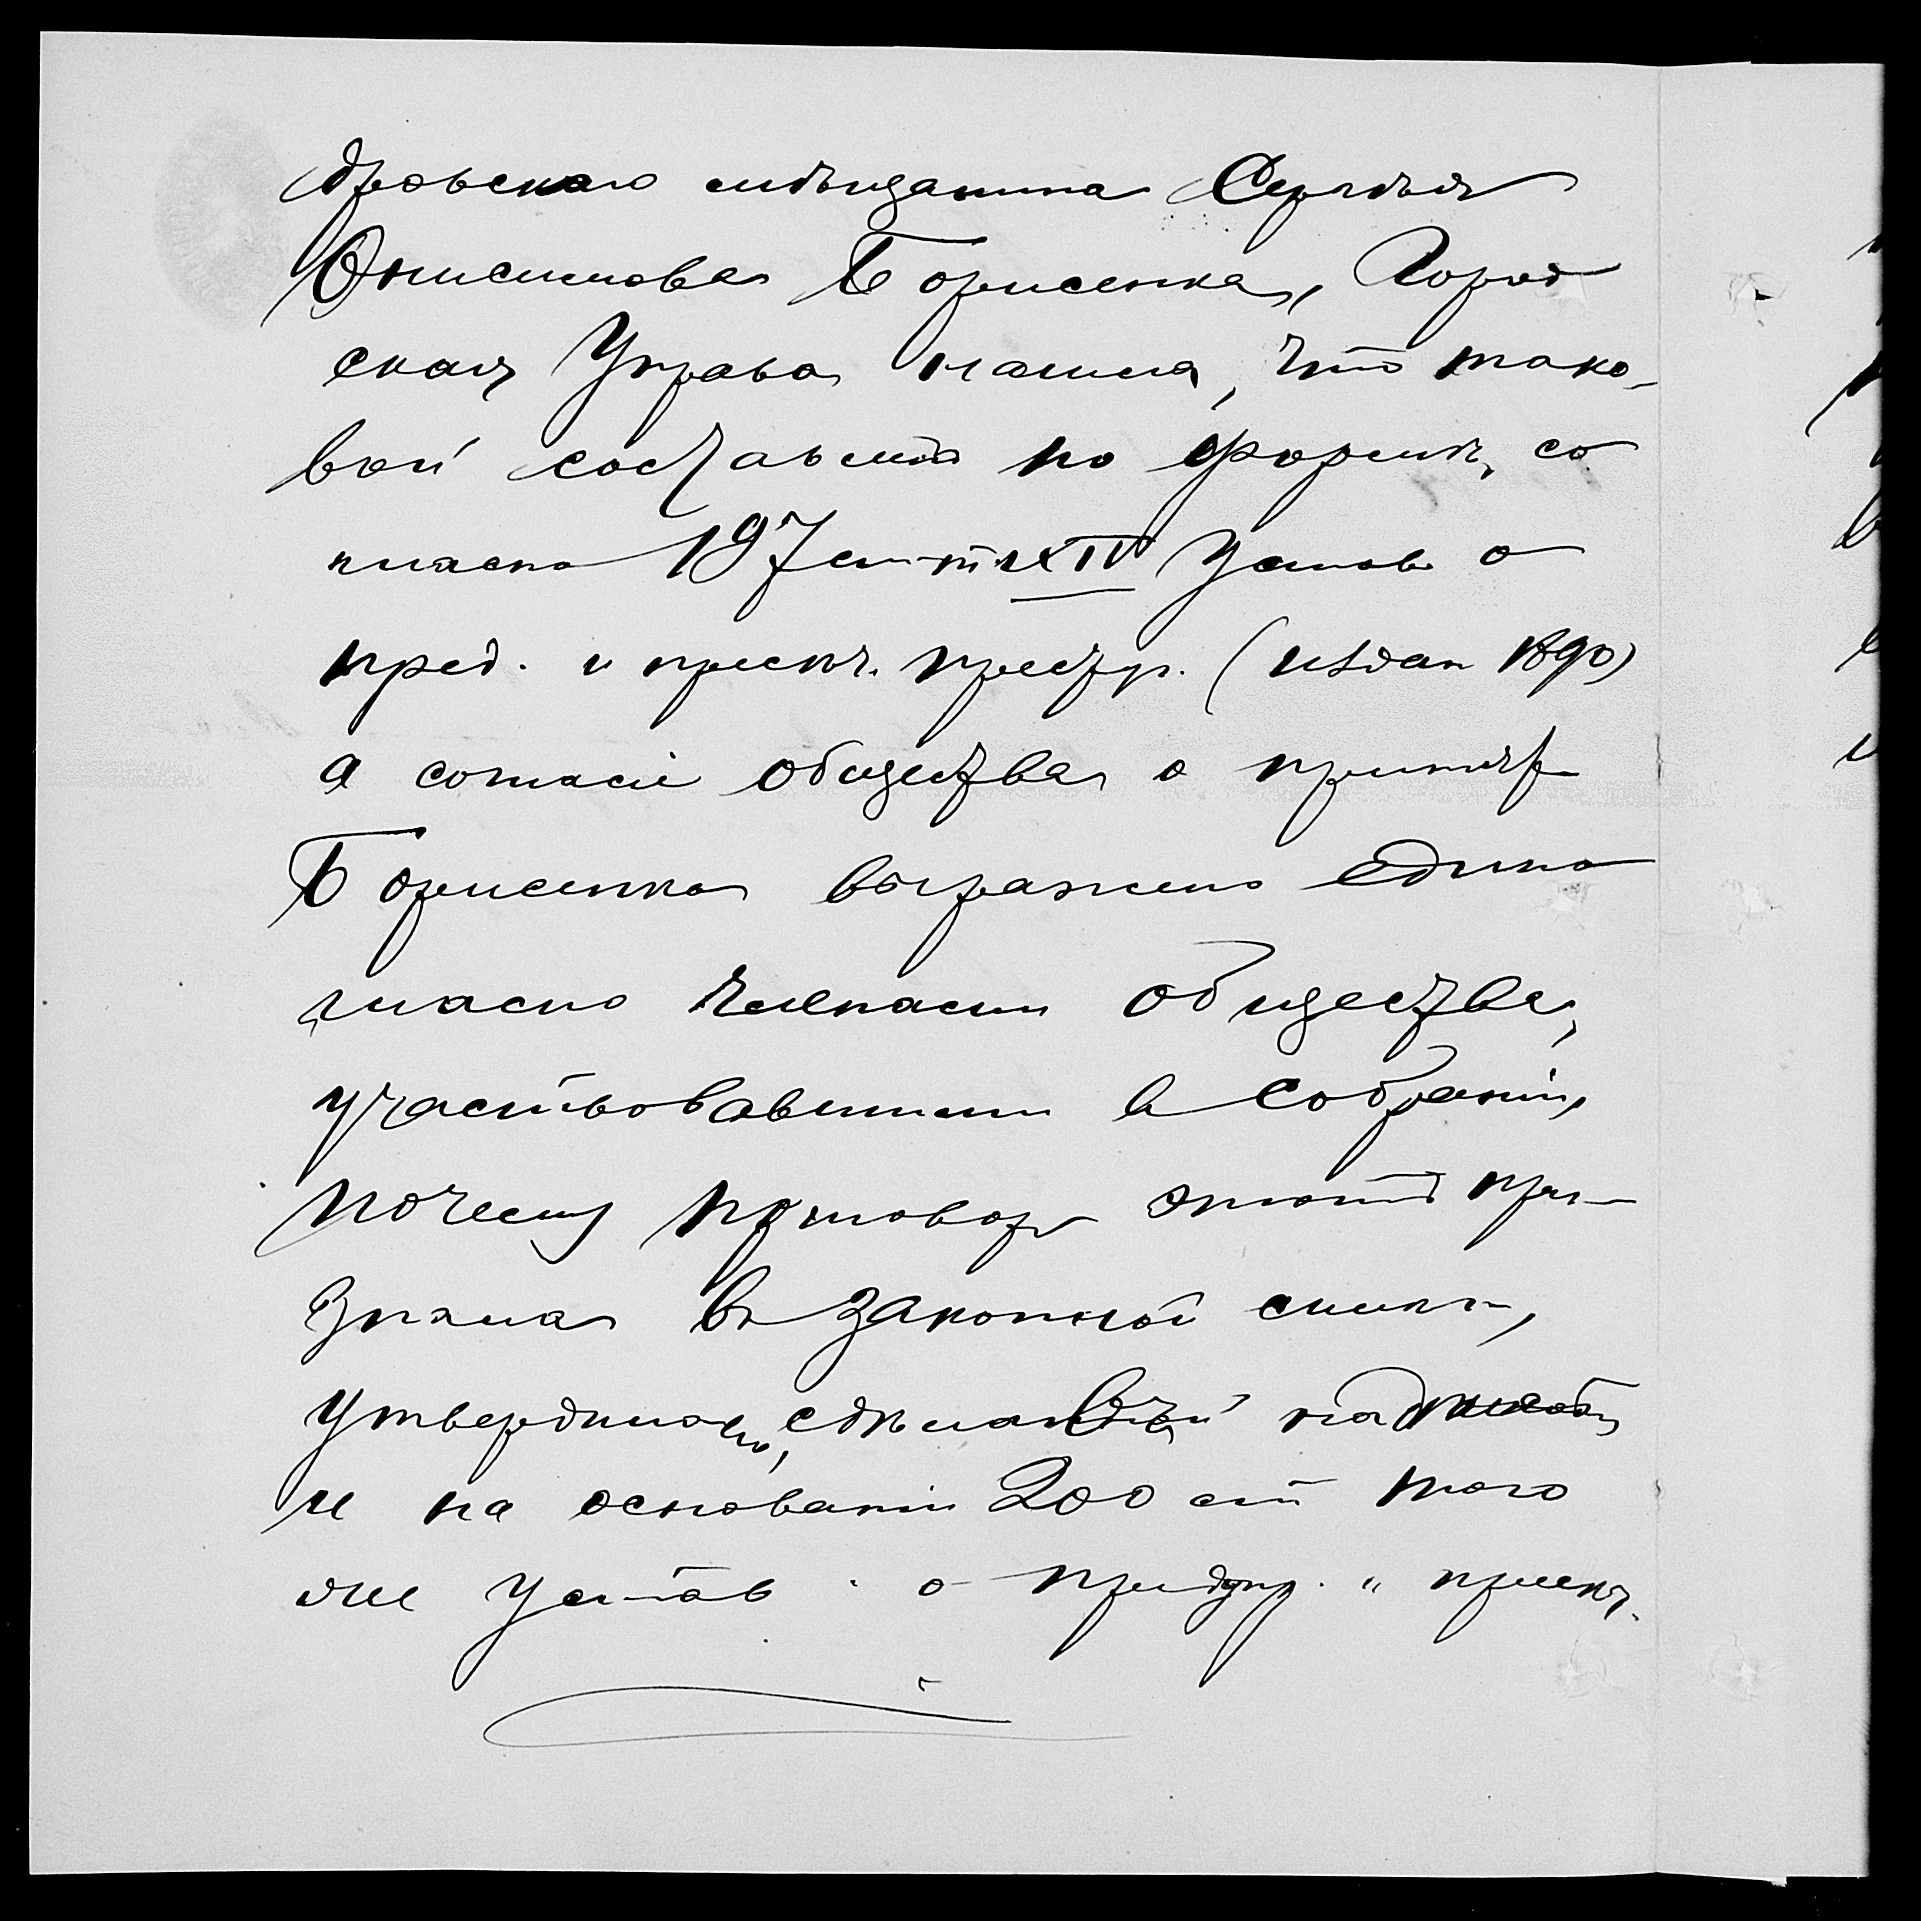 дровскаго мѣщанина Сергѣя
Онисимова Борисенка, Город
ская Управа нашла, что тако-
вой составленъ по формѣ, со
гласно 197 ст. т. XIV Устав. о
пред. и пресѣч. преступ. (издан 1890)
а согласіе общества о принятіи
Борисенка выражено едино
гласно членами общества,
участвовавшими в собраніи,
почему приговор этотъ при-
знала в законной силѣ,
утвердила, сдѣлавъ надпись
и на основаніи 200 ст того
же Устав. о предупр. и пресѣч.